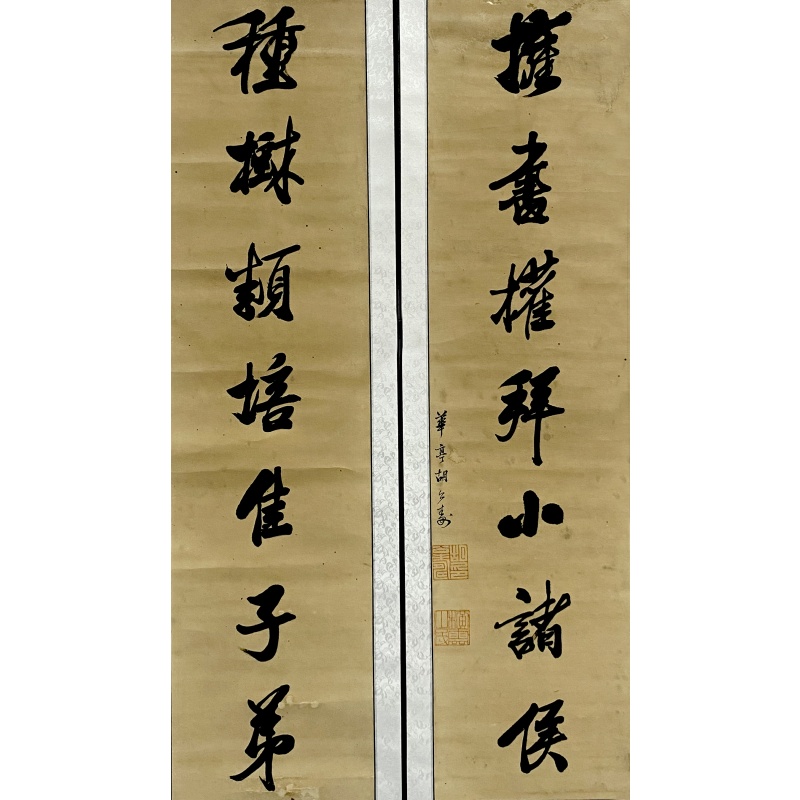 擁書權拜小諸侯
華亭胡公壽
種樹類培佳子弟